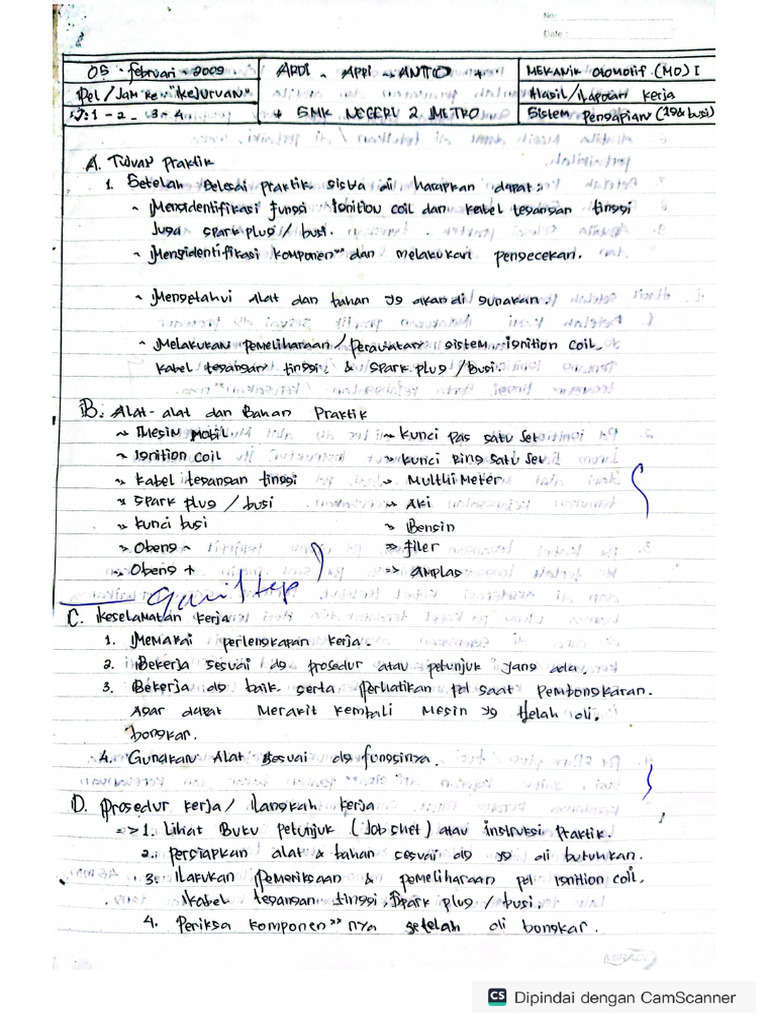 No:
Date:
05 - februari - 2009
ARDI - APRI - ANTO
MEKANIK OTOMOTIF (MO) I
Pel / Jam Ke " Kejuruan"
Hasil / Laporan Kerja
J : 1 - 2 - 3 - 4
SMK NEGERI 2 METRO
Sistem Pengapian (19& busi)
A. Tujuan Praktik
1. Setelah selesai praktik siswa di harapkan dapat :
~ Mengidentifikasi fungsi ignition coil dan kabel tegangan tinggi
Juga spark plug // busi.
~ Mengidentifikasi komponen"" dan melakukan pengecekan.
~ Mengetahui alat dan bahan yg akan di gunakan.
~ Melakukan pemeliharaan / perawatan sistem ignition coil.
kabel tegangan tinggi & spark plug / busi.
B. Alat-alat dan Bahan Praktik
~ Mesin Mobil
~ Kunci Pas satu Set
~ Ignition Coil
~ Kunci Ring satu Set
~ Kabel tegangan tinggi
~ Multhi Meter
~ Spark plug / busi
~ Aki
~ Kunci busi
~ Bensin
~ Obeng -
=> Filer
~ Obeng +
=> Amplas
C. Keselamatan Kerja
1. Memakai perlengkapan kerja.
2. Bekerja sesuai dg prosedur atau petunjuk yang ada.
3. Bekerja dg baik serta perhatikan pd saat Pembongkaran.
Agar dapat Merakit kembali Mesin yg telah di.
bongkar.
4. Gunakan Alat sesuai dg fungsinya.
D. Prosedur Kerja / Langkah Kerja
=> 1. Lihat Buku petunjuk (Job shet) atau instruksi Praktik.
2. persiapkan alat & bahan sesuai dg yg di butuhkan.
3. Lakukan Pemeriksaan & pemeliharaan pd ignition coil,
Kabel tegangan tinggi, Spark plug / busi.
4. Periksa komponen"" nya setelah di bongkar.
CS Dipindai dengan CamScanner